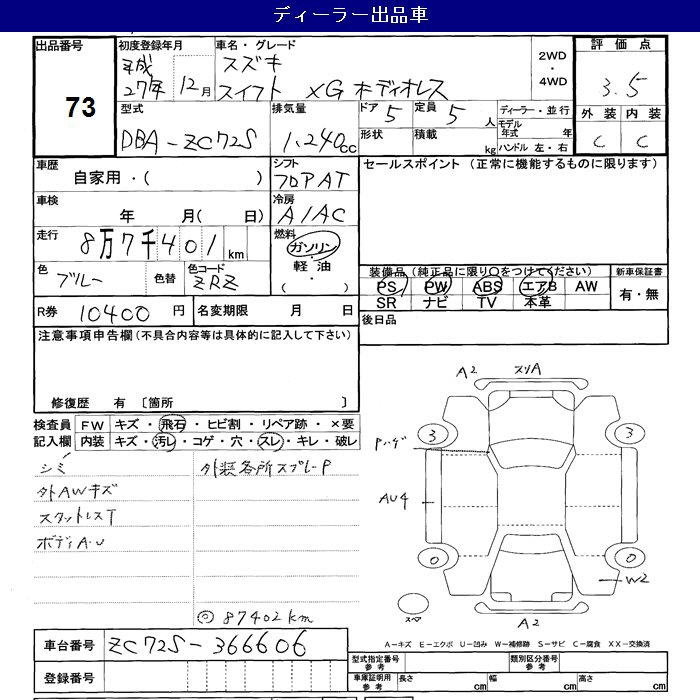 ディーラー出品車
出品番号 73
初度登録年月 平成 27年 12月
車名・グレード スズキ スイフト XG キディオレス
2WD ・ 4WD
評価点 3.5
外装 内装
C C
型式 DBA-ZC72S
排気量 1.240cc
ドア 5 定員 5人
形状 積載 kg
ディーラー・並行
モデル年式 年
ハンドル 左・右
車歴 自家用・( )
シフト フロアAT
セールスポイント (正常に機能するものに限ります)
車検 年 月( 日)
冷房 A/AC
走行 8万7千401km
燃料 ガソリン・軽油・( )
色 ブルー 色替 色コード ZRZ
装備品 (純正品に限り○をつけてください) 新車保証書
PS PW ABS エアB AW 有・無
SR ナビ TV 本革
R券 10400 円 名変期限 月 日
後日品
注意事項申告欄 (不具合内容等は具体的に記入して下さい)
修復歴 有 〔箇所 〕
検査員 FW キズ・飛石・ヒビ割・リペア跡・×要
記入欄 内装 キズ・汚レ・コゲ・穴・スレ・キレ・破レ
シミ 外装各所スプレーP
外AWキズ
スタットレスT
ボディA.U
◎87402km
A2 スリA
3 3
Pハゲ
AU4
0 0
W2
スペア
A2
A-キズ E-エクボ U-凹み W-補修跡 S-サビ C-腐食 XX-交換済
車台番号 ZC72S-366606
型式指定番号 参考 類別区分番号 参考
登録番号
車庫証明用 参考 長さ cm 幅 cm 高さ cm